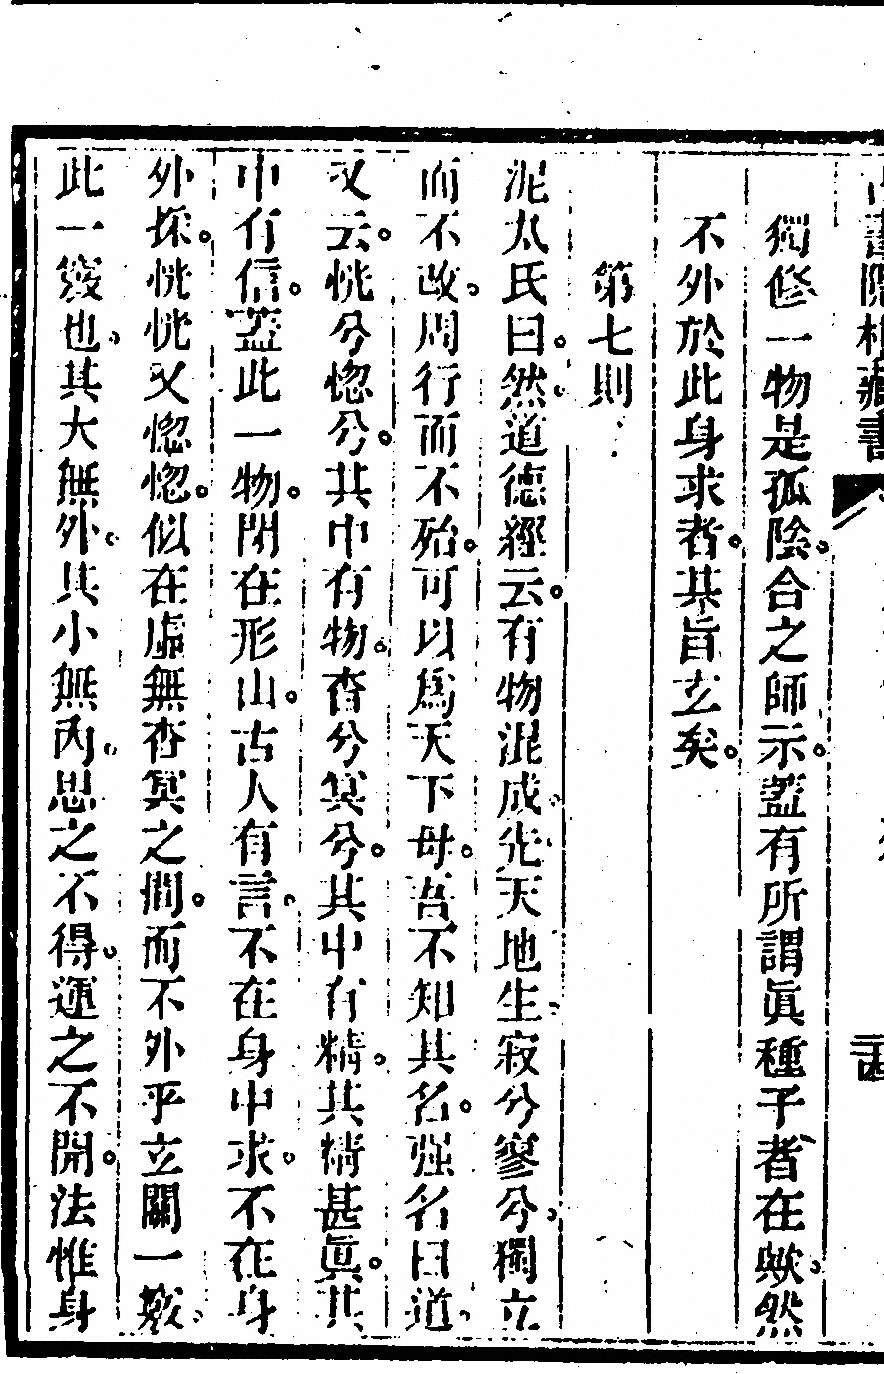 書隱樓藏書
獨修一物是孤陰。合之師示。蓋有所謂眞種子者在歟。然
不外於此身求者。其旨玄矣。
第七則
泥太氏曰。然。道德經云。有物混成。先天地生。寂兮寥兮。獨立
而不改。周行而不殆。可以爲天下母。吾不知其名。强名曰道。
又云。恍兮惚兮。其中有物。杳兮冥兮。其中有精。其精甚眞。其
中有信。蓋此一物。閉在形山。古人有言。不在身中求。不在身
外探。恍恍又惚惚。似在虛無杳冥之間。而不外乎玄關一竅。
此一竅也。其大無外。其小無內。思之不得。運之不開。法惟身